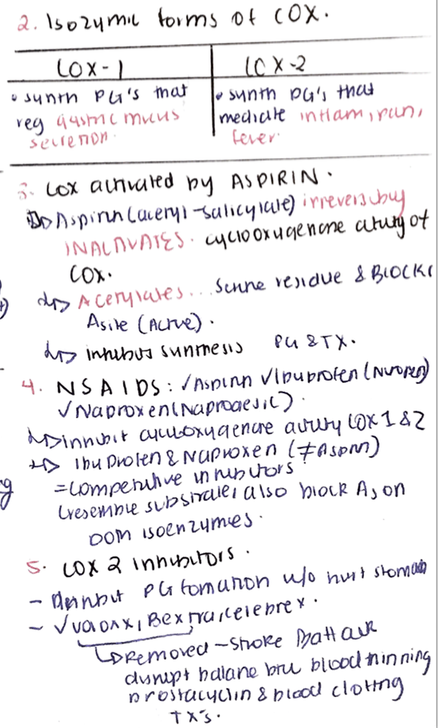 2. Isozymic forms of COX.
COX-1 COX-2
• synth PG's that • synth PG's that
reg gastric mucus mediate inflam, pain,
secretion. fever.
3. Cox activated by ASPIRIN.
Aspirin (aceryl-salicylate) irreversibly
INACTIVATES. cyclooxygenase activity of
COX.
↳ Acerylates... Serine residue & BLOCK
Asite (Active).
↳ inhibits synthesis PG & TX.
4. NSAIDS: √Aspirin √Ibuprofen (Nurofen)
√Naproxen (Naprogesic).
↳ inhibit cyclooxygenase activity COX 1 & 2
↳ Ibuprofen & Naproxen (≠Aspirin)
= competitive inhibitors
(resemble substrate) also block As on
both isoenzymes.
5. COX 2 inhibitors.
- inhibit PG formation w/o hurt stomach
- √vioxx, Bextra, celebrex.
↳ Removed - Stroke heart attack
disrupt balance btw blood thinning
prostacyclin & blood clotting
TX's.